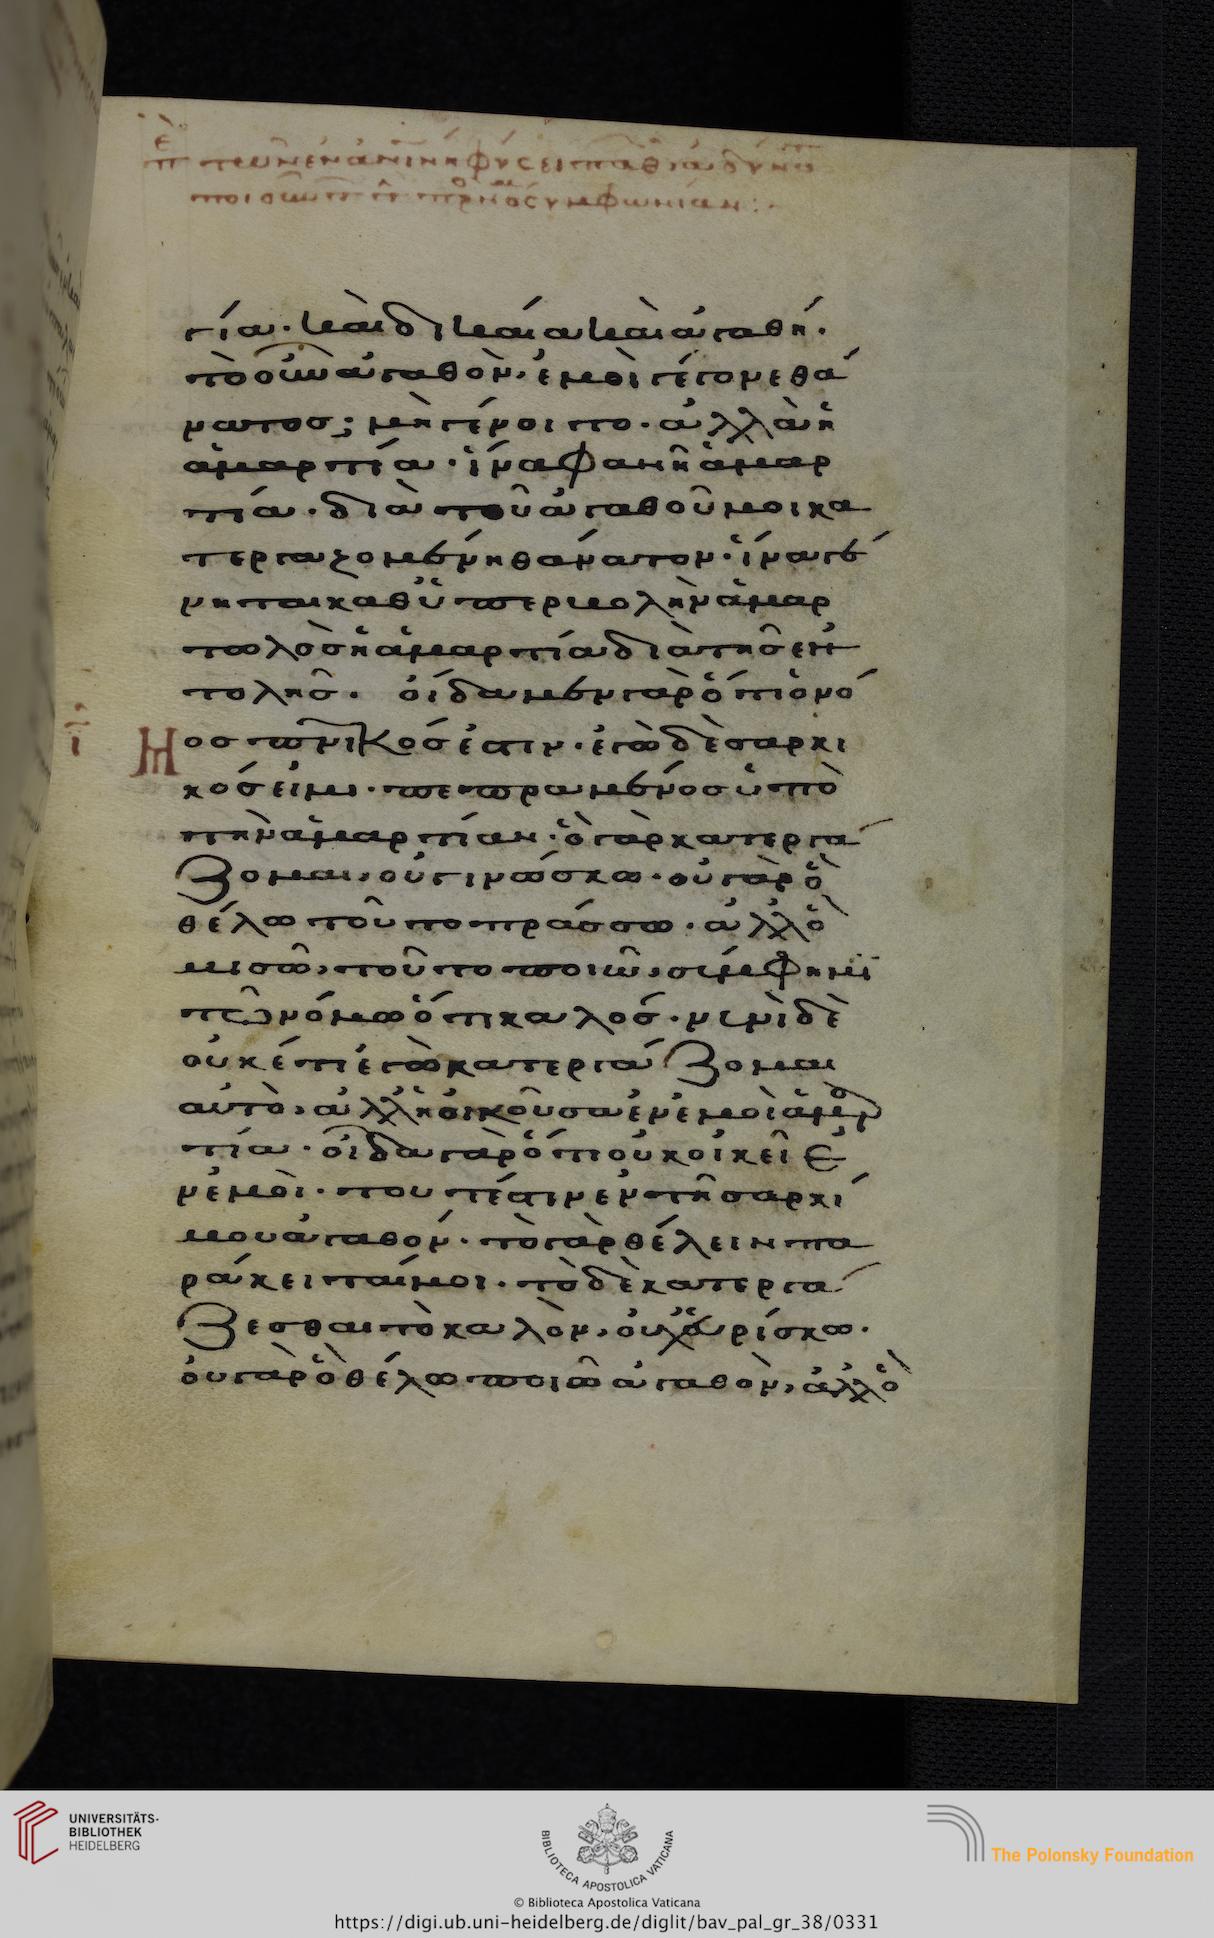 γία· καὶ δικαία καὶ ἀγαθή·
τὸ οὖν ἀγαθὸν, ἐμοὶ γέγονε θά
νατος; μὴ γένοιτο· ἀλλὰ ἡ
ἁμαρτία· ἵνα φανῆ ἁμαρ
τία· διὰ τοῦ ἀγαθοῦ μοι κα
τεργαζομένη θάνατον· ἵνα γέ
νηται καθ' ὑπερβολὴν ἁμαρ
τωλὸς ἡ ἁμαρτία διὰ τῆς ἐν
τολῆς· οἴδαμεν γὰρ ὅτι ὁ νό
ι
Μος πνικός ἐστιν· ἐγὼ δὲ σαρκι
κός εἰμι· πεπραμένος ὑπὸ
τὴν ἁμαρτίαν· ὃ γὰρ κατεργά
ζομαι, οὐ γινώσκω· οὐ γὰρ ὃ
θέλω τοῦτο πράσσω· ἀλλ' ὃ
μισῶ, τοῦτο ποιῶ, σύμφημι
τῶ νόμω ὅτι καλός· νυνὶ δὲ
οὐκέτι ἐγὼ κατεργάζομαι
αὐτὸ, ἀλλ' ἡ οἰκοῦσα ἐν ἐμοὶ ἁμαρ
τία· οἶδα γὰρ ὅτι οὐκ οἰκεῖ ἐ
ν ἐμοὶ· τουτέστιν ἐν τῆ σαρκί
μου ἀγαθόν· τὸ γὰρ θέλειν πα
ράκειταί μοι· τὸ δὲ κατεργά
ζεσθαι τὸ καλὸν, οὐχ εὑρίσκω·
οὐ γὰρ ὃ θέλω ποιῶ ἀγαθὸν, ἀλλ' ὃ
UNIVERSITÄTS-
BIBLIOTHEK
HEIDELBERG
BIBLIOTECA APOSTOLICA VATICANA
The Polonsky Foundation
© Biblioteca Apostolica Vaticana
https://digi.ub.uni-heidelberg.de/diglit/bav_pal_gr_38/0331